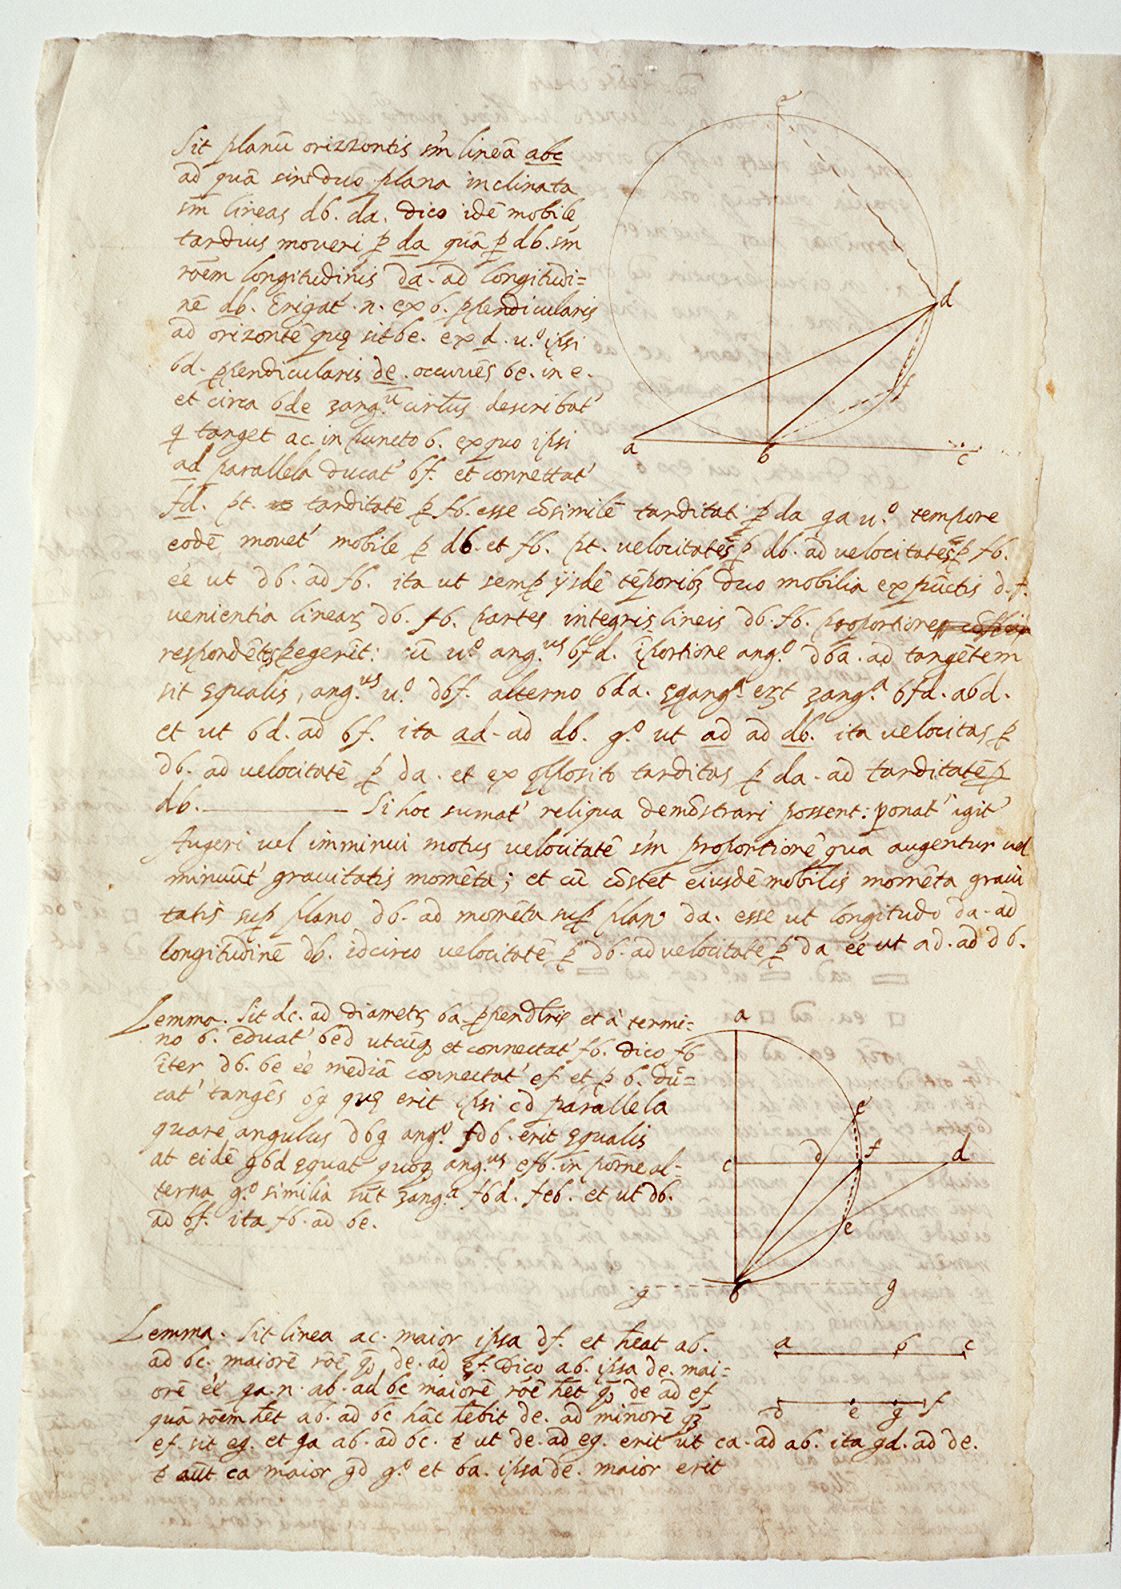 Sit planū orizzontis sm̄ lineā abc
ad quā sint duo plana inclinata
sm̄ lineas db. da. dico idē mobile
tardius moveri ꝑ da quā ꝑ db. sm̄
rōem longitudinis da. ad longitudi=
nē db. Erigat' .n. ex b. ꝑpendicularis
ad orizontē quę sit be. ex d. u.º ipsi
bd. ꝑpendicularis de. occurrēs be. in e.
et circa bde ꝫang.ū circūs describat'
q̄ tanget ac. in puncto b. ex quo ipsi
ad parallela ducat' bf. et connettat'
fd. pt. tarditatē ꝑ fb. esse cōsimilē tarditati ꝑ da qa u.º tempore
eodē movet' mobile ꝑ db. et fb. pt. velocitatēs ꝑ db. ad velocitatēs ꝑ fb.
ēe ut db. ad fb. ita ut semꝑ ijsdē tēporibꝫ duo mobilia ex pūctis d. f.
venientia linearꝫ db. fb. partes integris lineis db. fb. proportione
respondētes ꝑegerīt: cū u.º ang.us bfd. ī portione ang.º dba. ad tangētem
sit equalis, ang.us u.º dbf. alterno bda. eqang.a erꝫt ꝫang.a bfd. abd.
et ut bd. ad bf. ita ad. ad db. g.º ut ad ad db. ita velocitas ꝑ
db. ad velocitatē ꝑ da. et ex opposito tarditas ꝑ da. ad tarditatē ꝑ
db. Si hoc sumat' reliqua demōstrari possent: ponat' igit'
Augeri vel imminui motus velocitatē sm̄ proportionē qua augentur vel
minuūt' gravitatis momēta; et cū cōstet eiusdē mobilis momēta gravi
tatis suꝑ plano db. ad momēta suꝑ plano da. esse ut longitudo da. ad
longitudinē db. idcirco velocitatē ꝑ db. ad velocitatē ꝑ da ēe ut ad. ad db.
a
b
c
d
e
f
Lemma. Sit dc. ad diametrꝫ ba ꝑpendlris et à termi-
no b. educat' bed utcūqꝫ et connectat' fb. dico fb
īter db. be ēe mediā connectat' ef. et ꝑ b. du-
cat' tangēs bg quę erit ipsi cd parallela
quare angulus dbg ang.º fdb. erit equalis
at eidē gbd equat' quoqꝫ ang.us efb. in porne al-
terna g.º similia sūt ꝫang.a fbd. feb. et ut db.
ad bf. ita fb. ad be.
a
e
c
d
f
d
e
g
b
g
Lemma. Sit linea ac. maior ipsa df. et h̄eat ab.
ad bc. maiorē rōē qꝫ de. ad ef. dico ab. ipsa de. mai=
orē ēe qa .n. ab. ad bc maiorē rōē h̄et qꝫ de ad ef
quā rōem h̄et ab. ad bc hāc h̄ebit de. ad minorē qꝫ
ef. sit eg. et qa ab. ad bc. ē ut de. ad eg. erit ut ca. ad ab. ita gd. ad de.
ē aūt ca maior gd g.º et ba. ipsa de. maior erit
a b c
d e g f